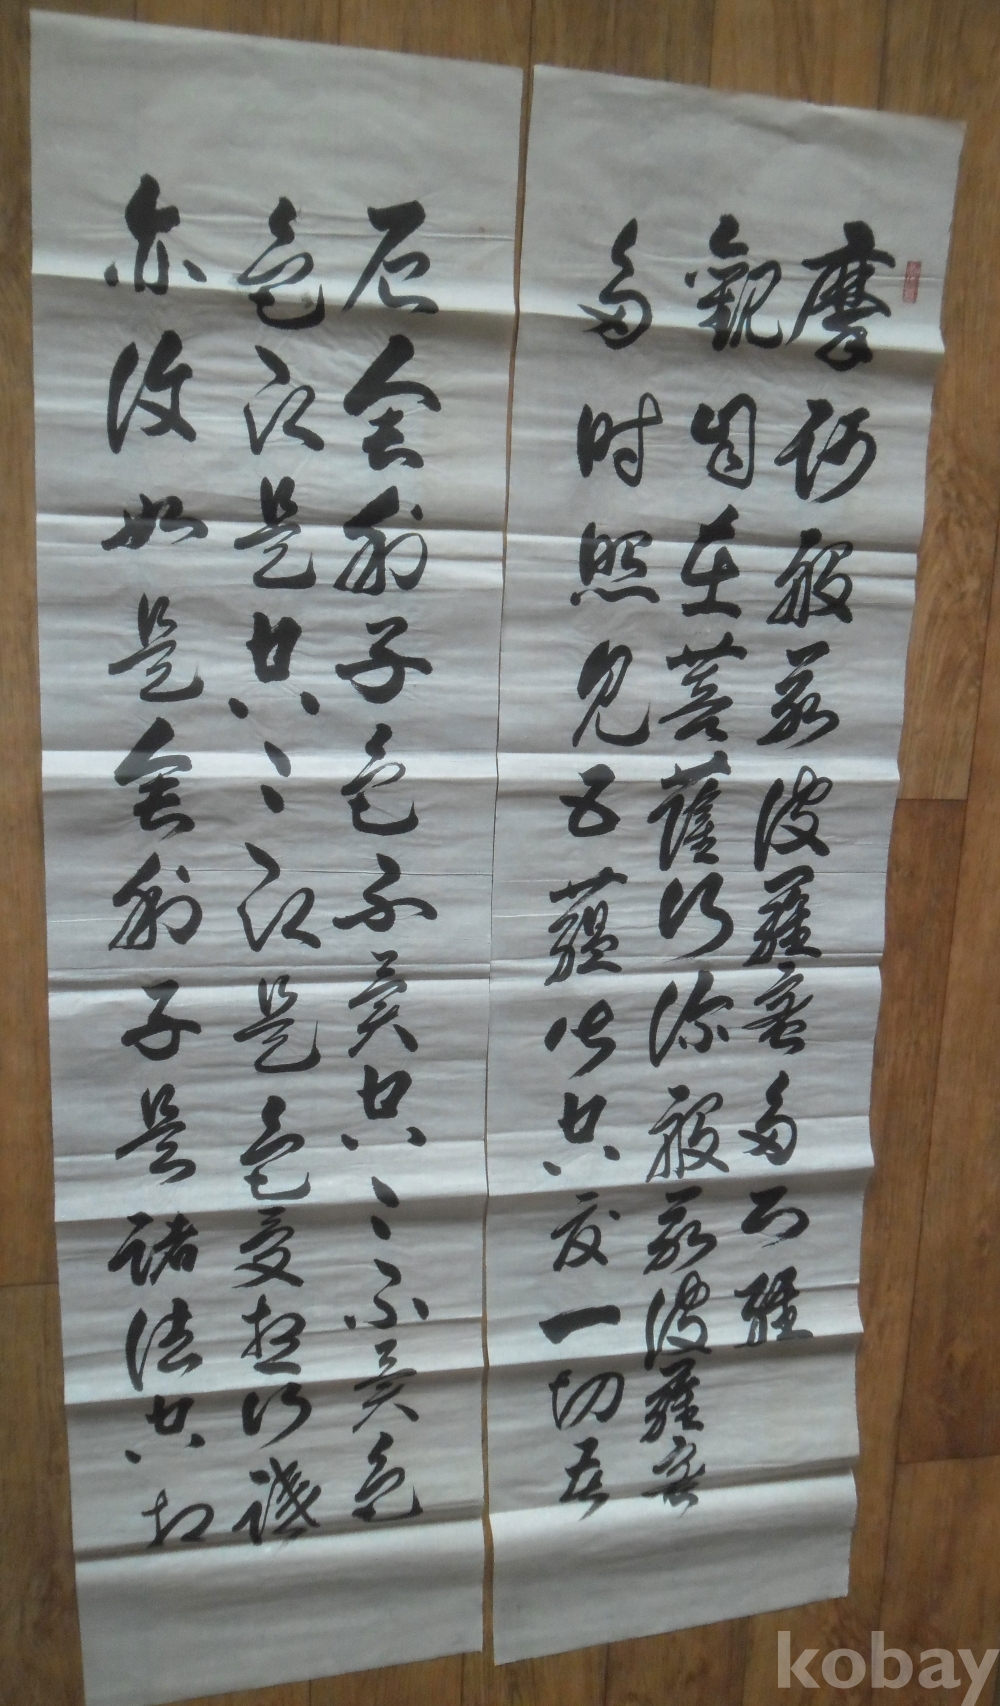 摩訶般若波羅蜜多心經
觀自在菩薩行深般若波羅蜜
多時照見五蘊皆空度一切苦
厄舍利子色不異空〻不異色
色即是空〻即是色受想行識
亦復如是舍利子是諸法空相
kobay